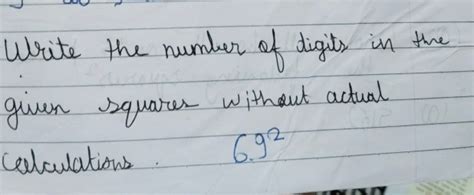 Write the number of digits in the
given squares without actual
calculations. 6.9²